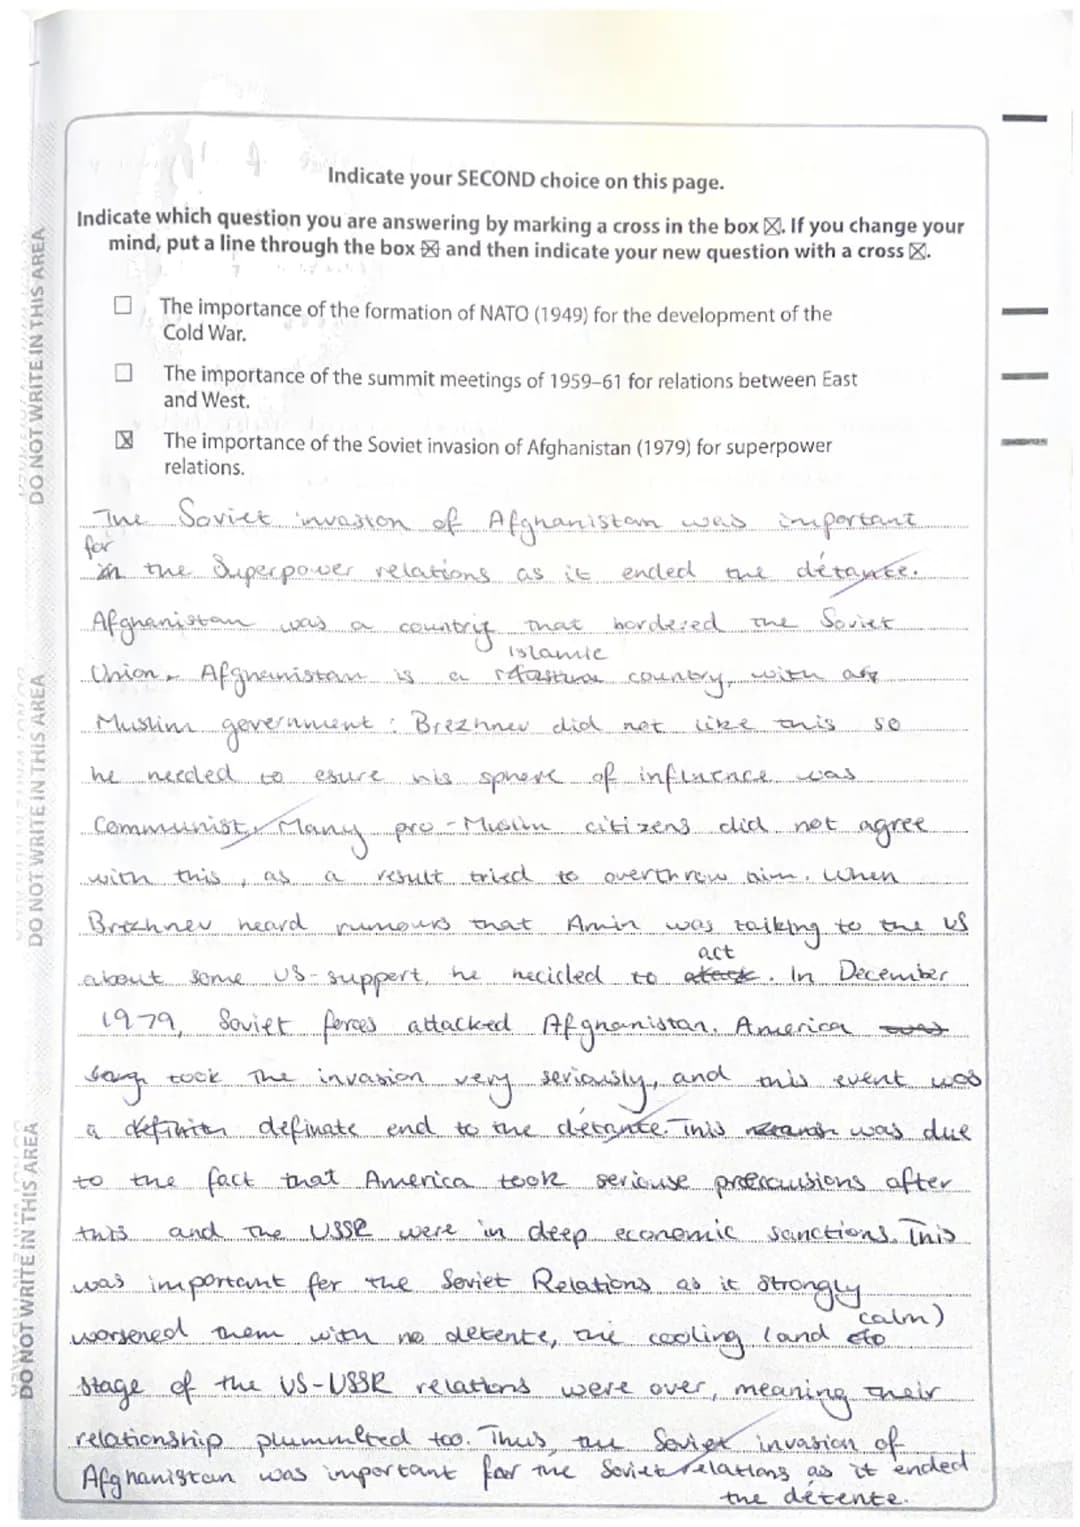 Indicate your SECOND choice on this page.
Indicate which question you are answering by marking a cross in the box ☒. If you change your
mind, put a line through the box ☒ and then indicate your new question with a cross ☒.
☐ The importance of the formation of NATO (1949) for the development of the
Cold War.
☐ The importance of the summit meetings of 1959–61 for relations between East
and West.
☒ The importance of the Soviet invasion of Afghanistan (1979) for superpower
relations.
The Soviet invasion of Afghanistan was important
for
in the Superpower relations as it ended the détante.
Afghanistan was a country that bordered the Soviet
islamic
Union. Afghanistan is a country, with a
Muslim government: Brezhnev did not like this so
he needed to esure his sphere of influence was
Communist. Many pro-Muslim citizens did not agree
with this, as a result tried to overthrow him. When
Brezhnev heard rumours that Amin was talking to the US
act
about some US-support, he decided to attack. In December
1979, Soviet forces attacked Afghanistan. America was
took the invasion very seriously, and this event was
a definate end to the détante. This was due
to the fact that America took seriouse precausions after
this and the USSR were in deep economic sanctions. This
was important for the Soviet Relations as it strongly
calm)
worsened them with no détente, the cooling (and
stage of the US-USSR relations were over, meaning their
relationship plummeted too. Thus, the Soviet invasion of
Afghanistan was important for the Soviet relations as it ended
the détente.
DO NOT WRITE IN THIS AREA
DO NOT WRITE IN THIS AREA
DO NOT WRITE IN THIS AREA